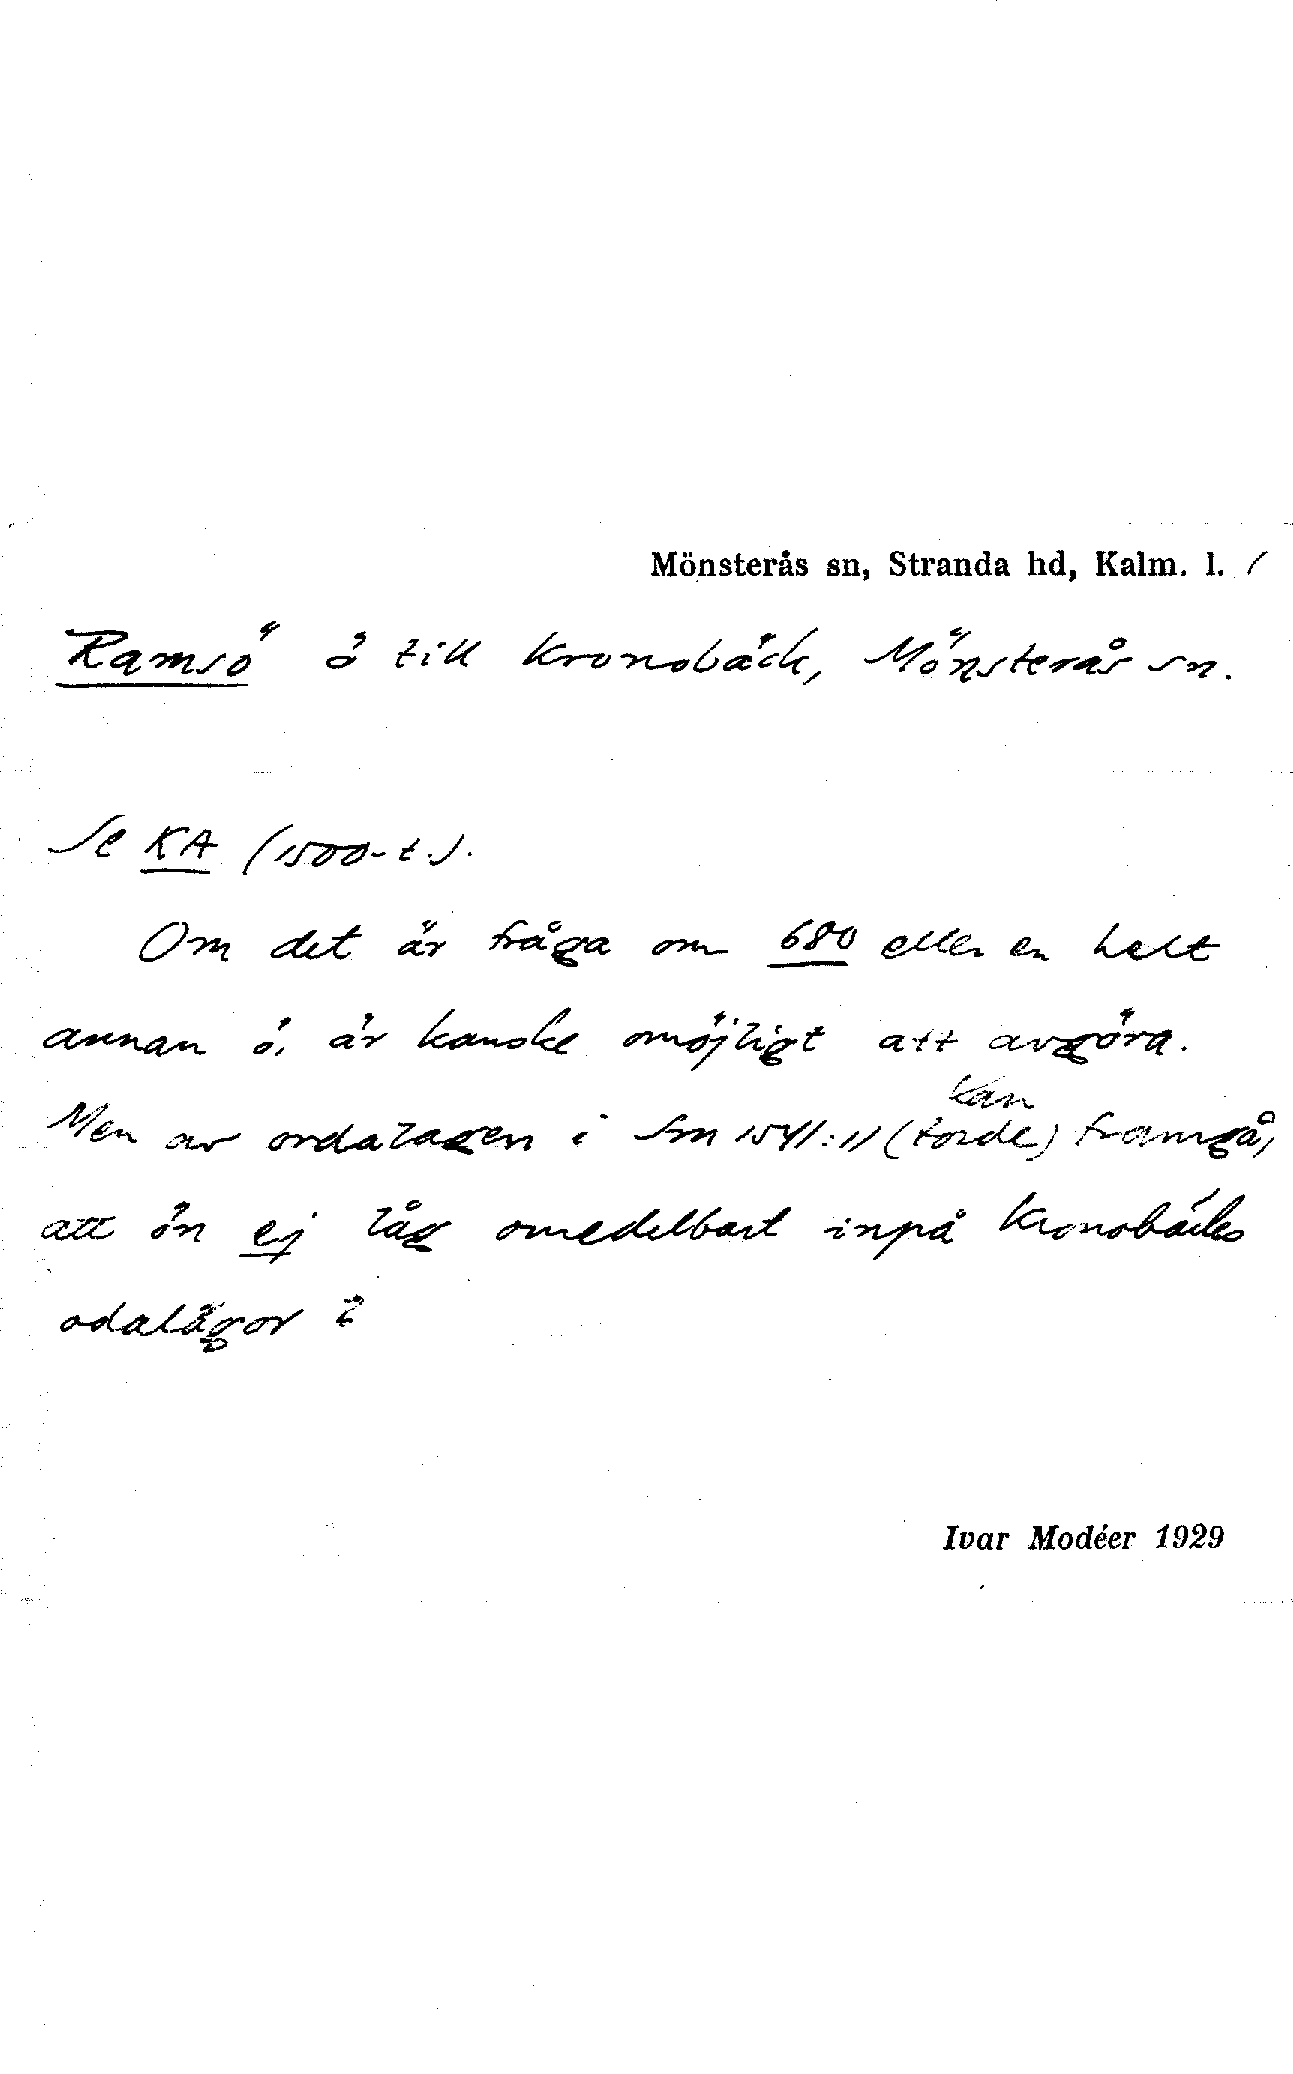 Mönsterås sn, Stranda hd, Kalm. l. /
Ramsö ö till Kronobäck, Mönsterås sn.
Se KA (1500-t.).
Om det är fråga om 680 eller en helt
annan ö, är kanske omöjligt att avgöra.
kan
Men av ordalagen i Sm 1541:11 (torde) framgå,
att ön ej låg omedelbart inpå Kronobäcks
odalägor?
Ivar Modéer 1929